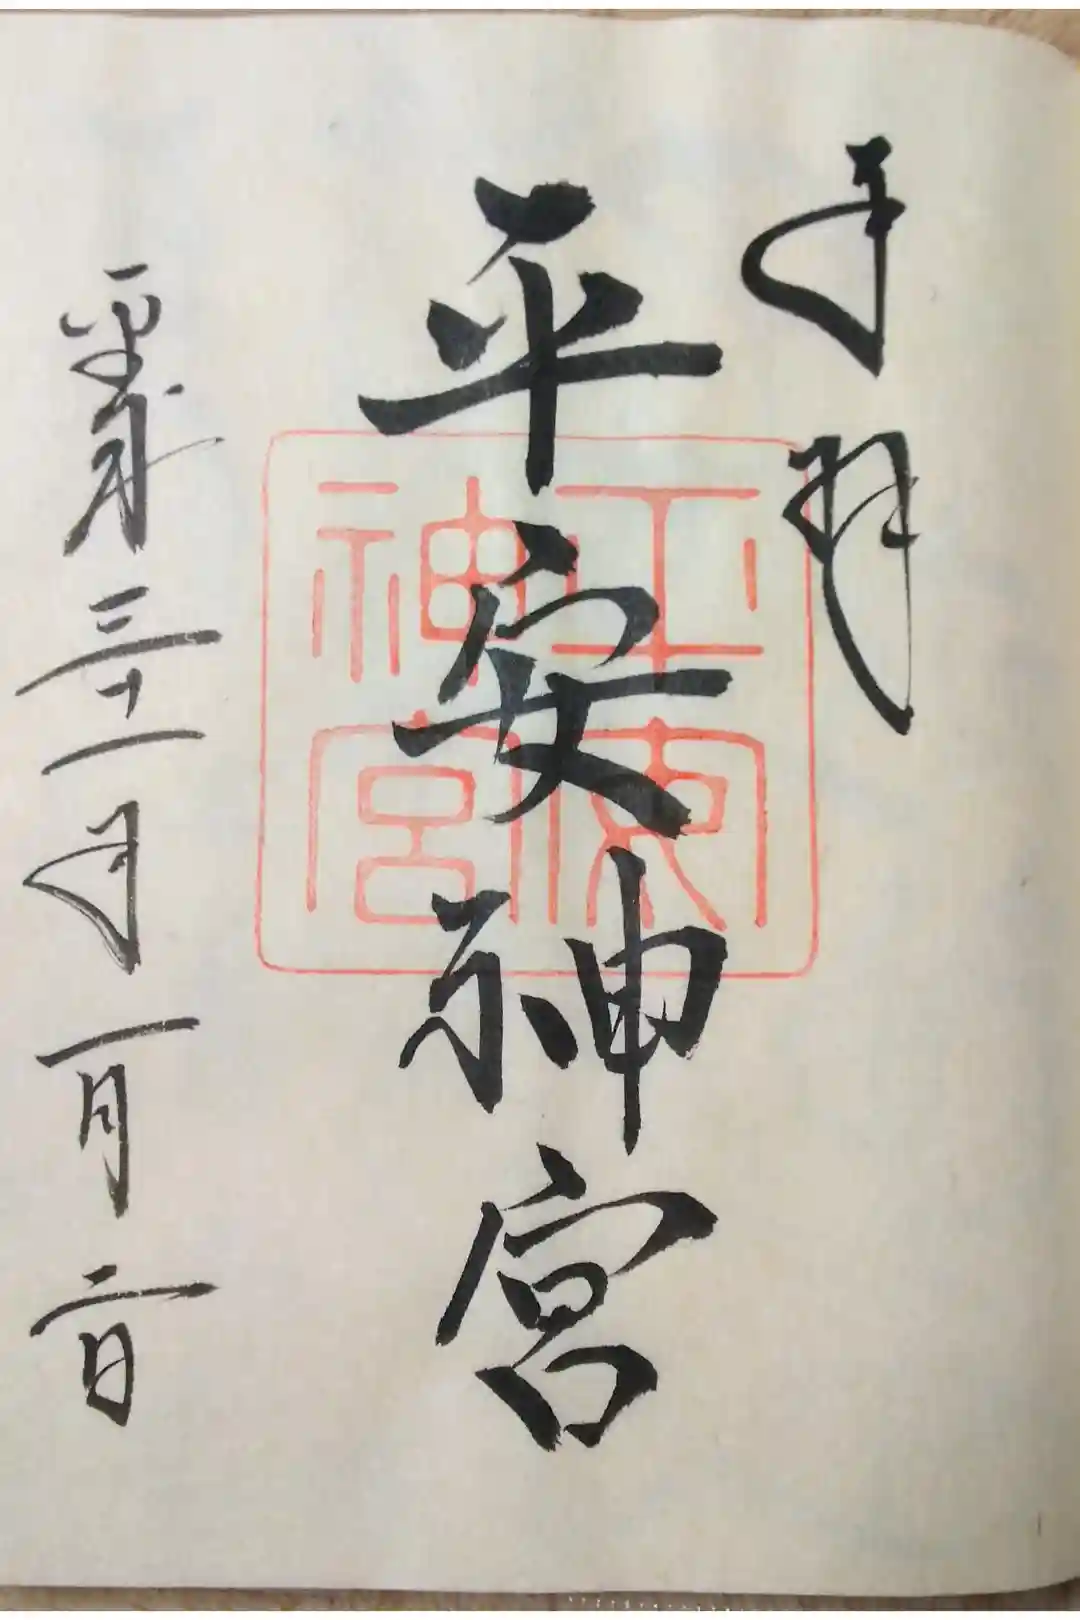 奉拝
平安神宮
平安
神宮
平成三十一年一月二日